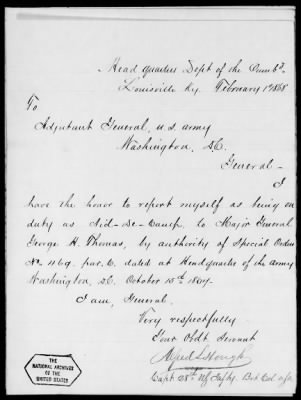 Head quarters Dept of the Cumbd.
Louisville Ky. February 1st 1868
To
Adjutant General, U S Army
Washington, D.C.
General –
I
have the honor to report myself as being on
duty as Aid-De-Camp, to Major General
George H. Thomas, by authority of Special Orders
No 469. par. 6. dated at Head quarters of the Army
Washington, D.C. October 15th 1867.
I am, General,
Very respectfully
Your Obdt. Servant
Alfred L Hough
Capt. Infty. Bvt Col
THE
NATIONAL ARCHIVES
OF THE
UNITED STATES